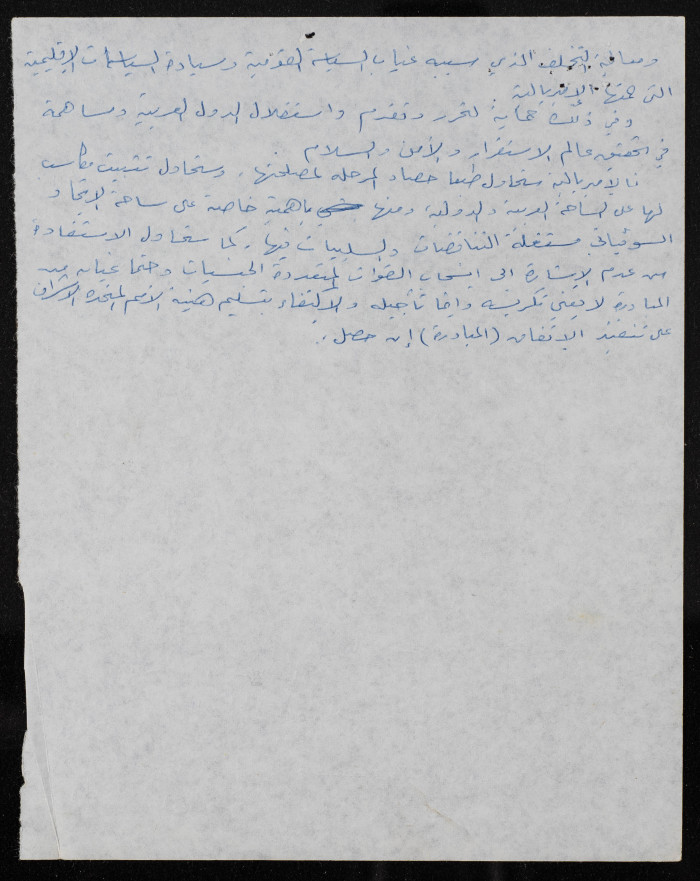 ومعالجة التخلف الذي سببه غياب السياسة القومية وسيادة السياسات الإقليمية
التي همتها الإمبريالية
وفي ذلك حماية لتحرر وتقدم واستقلال الدول العربية ومساهمة
في تحقيق عالم الاستقرار والأمن والسلام
فالامبريالية ستحاول طبعا حصاد المرحلة لمصلحتها، وستحاول تثبيت مكاسب
لها على الساحة العربية والدولية، ومنها بأهمية خاصة على ساحة الاتحاد
السوفياتي مستغلة التناقضات والسلبيات فيها، كما ستحاول الاستفادة
من عدم الإشارة الى انسحاب القوات المتعددة الجنسيات وحتما غيابه عن
المبادرة لا يعني تكريسه وإنما تأجيله والاكتفاء بتسليم هيئة الأمم المتحدة الاشراف
على تنفيذ الاتفاق (المبادرة) إن حصل.